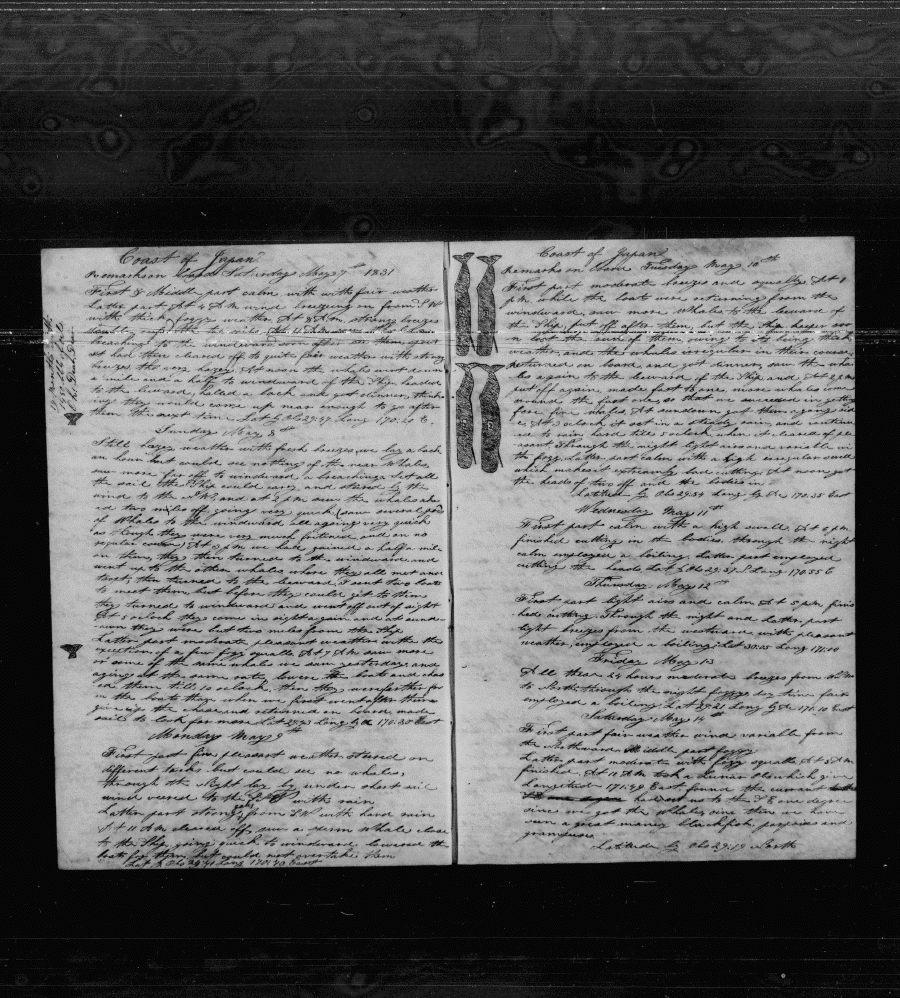 Coast of Japan
Remarks on board Saturday May 7th 1831
First & Middle part calm with with fair weather
latter part At 4 AM wind breezing on from SW
with thick foggy weather At 8 AM strong breezes
breaching to the windward soon after
it had then cleared off to quite fair weather with strong
breezes tho very hazey At noon the whales went down
a mile and a half to windward of the Ship headed
to the leeward, halled a back and got dinner, think
ing they would come up near enough to go after
them the next time Lat by Obs 29:37 Long 170:20 E
Sunday May 8th
Still hazey weather with fresh breezes, we lay aback
an hour but could see nothing of the near Whales,
saw more far off to windward a breaching Set all
the sail the Ship could carry and stood by the
wind to the NW, and at 2 PM saw the whales ahe
ad two miles off going very quick (saw several pods
of Whales to the windward all ageing very quick
as though they were very much fritened and on no
regular course) At 3 PM we had gained a half a mile
on them, they then turned to the windward and
went up to the other whales where they all met and
then turned to the leeward I sent two boats
to meet them, but before they could get to them
they turned to windward and went off out of sight
At o clock they come in sight again and at sund
own they were but two miles from the Ship
Latter part moderate pleasant weather with the
exception of a few foggy squalls At 7 AM saw more
or some of the same whales we saw yesterday, and
ageing at the same rate, lowere the boats and chas
ed them till 10 oclock, then they were farther from
the boats than when we first went after them
give up the chase and returned on board made
sail to look for more Lat 29:43 Long by 170:30 East
Monday May 9th
First part fine pleasant weather steered on
different tacks but could see no whales,
through the Night lay by under short sail
wind veered to the with rain
Latter part strong from SW with hard rain
At 11 AM cleared off saw a sperm Whale close
to the Ship going quick to windward lowered the
boats for them but could not overtake them
Lat by Obs 29:41 Long 170:40 East
Coast of Japan
Remarks on board Tuesday May 10th
First part moderate breezes and squally At 1
PM while the boats were returning from the
windward, saw more Whales to the leeward of
the Ship, put off after them, but the Ship keeper soo
n lost the run of them, owing to its being thick
weather, and the whales irregular in their course,
returned on board and got dinner, saw the wha
les again to the leeward of the Ship and At 2 PM
put off again, made fast to one, more whales come
around the fast one, so that we succeeded in gettin
four fine whales, At sundown got them along sid
e, At 3 oclock it set in a steady rain, and continu
ed to rain hard till 5 oclock when it cleared of ple
asant Through the night light airs and
the fog Latter part calm with a high irregular swell
which makes it extremely bad cutting, At noon got
the heads of two off and the bodies in
Latitude by Obs 29:34 Long by 170:35 East
Wednesday May 11th
First part calm with a high swell, At 6 PM
finished cutting in the bodies, through the night
calm employed a boiling Latter part employed
cutting the heads Lat by Obs 29:37 Long 170:55 E
Thursday May 12th
First part light airs and calm At 5 PM finis
hed cutting, Through the night and Latter part
light breezes from the westward with pleasant
weather, employed a boiling Lat 30:05 Long 171:00
Friday May 13
All these 24 hours moderate breezes from
to North through the night foggy day time fair
employed a boiling Lat 29:21 Long by 171:10 East
Saturday May 14th
First part fair weather wind variable from
the Northward Middle part foggy
Latter part moderate with fogg squalls At 8 AM
finished, At 11 AM took a Lunar Obs which give
Longitude 171:49 East found the current
had set us to the one degree
since we got the Whales since then we have
seen a great many blackfish, porpoises and
grampuses
Latitude by Obs 29:19 North